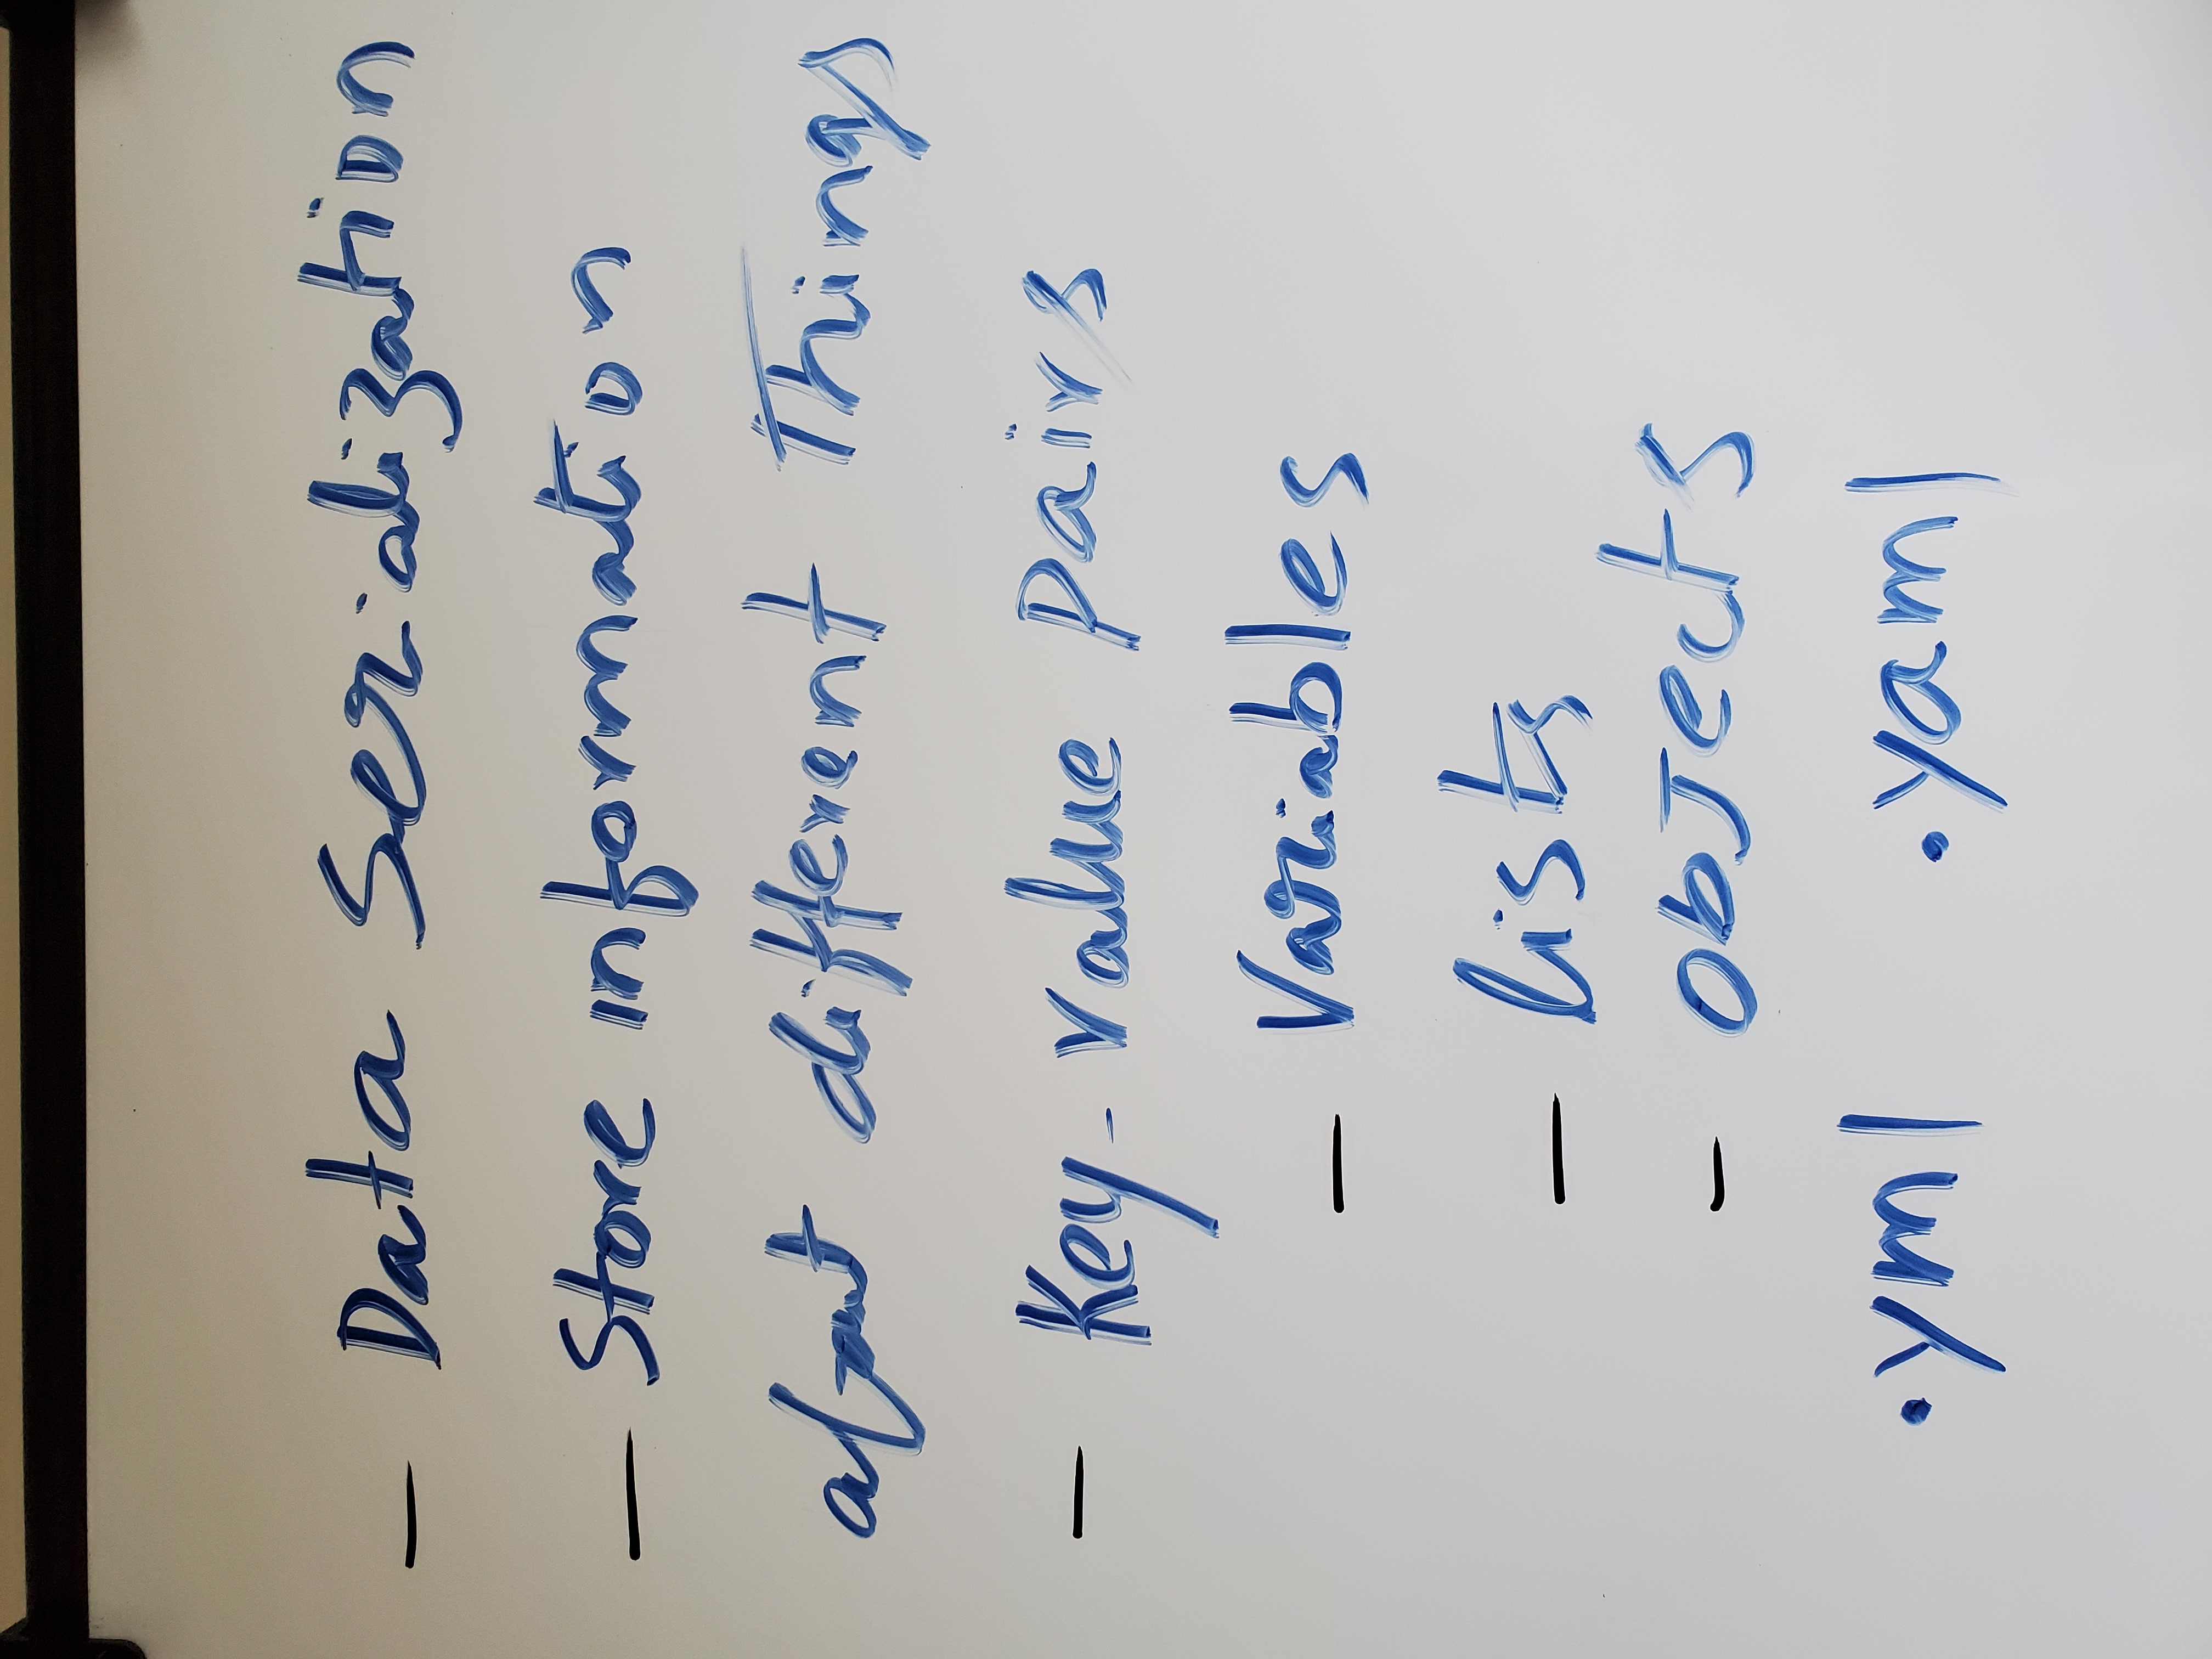 - Data Serialization
- Store information
about different Things
- Key-value pairs
- Variables
- lists
- objects
.yml .yaml